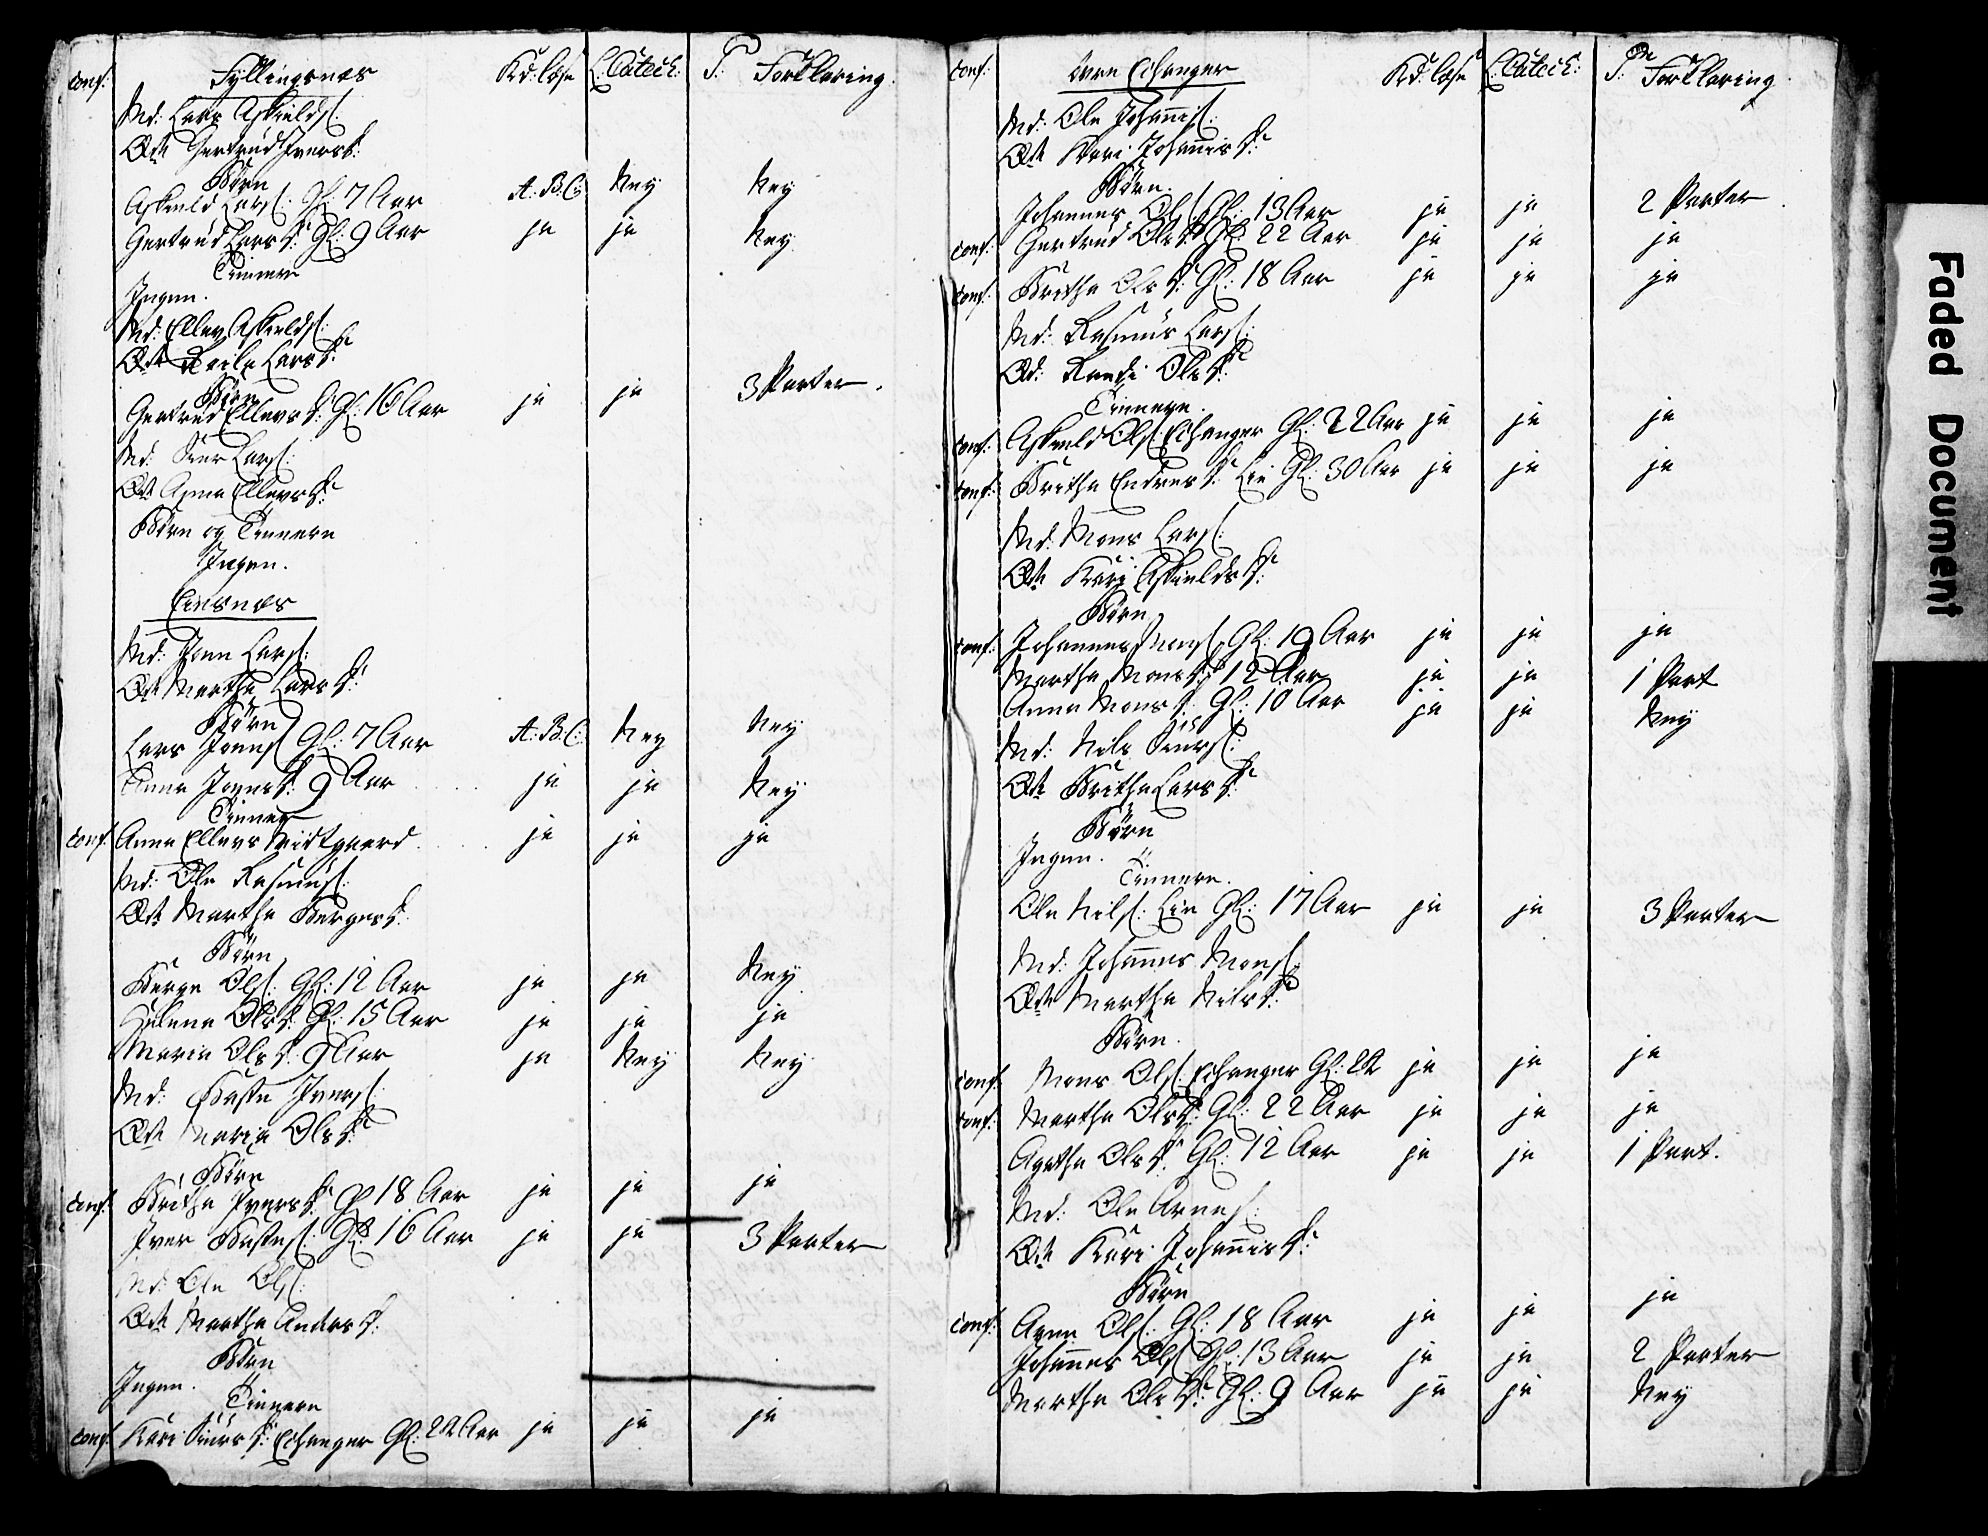 conf: Fyllingsnæs Kd: læse L: Catech: P: Forklaring.
Md: Lars Askields:
Qde Gertrud Ivers D:
Børn
Askield Lars: Gl: 7 Aar A:B:C: Ney Ney
Gertrud Lars D: Gl: 9 Aar ja ja Ney
Tienere
Ingen.
Md: Ellev Askields:
Qde Lars D:
Børn
Gertrud Ellevs D: Gl: 16 Aar ja ja 3 Parter.
Md: Siur Lars:
Qde Anna Ellevs D:
Børn og Tienere
Ingen.
Eirsnæs
Md: Joen Lars:
Qde Martha Lars D:
Børn
Lars Joens: Gl: 7 Aar A:B:C: Ney Ney
Anna Joens D: 9 Aar ja ja Ney
Tiener
conf: Anna Ellevs Midtgaard ja ja ja
Md: Ole Rasmus:
Qde Martha Berges D:
Børn
Berge Ols: Gl: 12 Aar ja ja Ney
Helena Ols D: Gl: 15 Aar ja ja ja
Maria Ols D: 9 Aar ja Ney Ney
Md: Ivers:
Qde Maria Ols D:
Børn
conf: Britha Ivers D: Gl: 18 Aar ja ja ja
Iver Gl: 16 Aar ja ja 3 Parter
Md: Ole Ols:
Qde Martha Anders D:
Børn
Ingen.
Tienere
conf: Kari Siurs D: Echanger Gl: 24 Aar ja ja ja
conf: Øvre Echanger Kd: læse L: Catech: P: Forklaring.
Md: Ole Johannis:
Qde Kari Johannis D:
Børn.
Johannes Ols: Gl: 13 Aar ja ja 2 Parter.
conf: Gertrud Ols D: Gl: 22 Aar ja ja ja
conf: Britha Ols D: Gl: 18 Aar ja ja ja
Md: Rasmus Lars:
Qd: Randi Ols D:
Tienere.
conf: Askield Ols: Echanger Gl: 22 Aar ja ja ja
conf: Britha Endres D: Lie Gl: 30 Aar ja ja ja
Md: Mons Lars:
Qde Kari Askields D:
Børn
conf: Johannes Mons: Gl: 19 Aar ja ja ja
Martha Mons D: 12 Aar ja ja 1 Part
Anna Mons D: Gl: 10 Aar ja ja Ney
Md: Nils Siurs:
Qde Britha Lars D:
Børn
Ingen.
Tienere.
Ole Nils: Lie Gl: 17 Aar ja ja 3 Parter
Md: Johannes Mons:
Qde Martha Nils D:
Børn.
conf: Mons Ols: Echanger Gl: 24 ja ja ja
conf: Martha Ols D: Gl: 22 Aar ja ja ja
Agatha Ols D: Gl: 12 Aar ja ja 1 Part.
Md: Ole Arnes:
Qde Kari Johannis D:
Børn
conf: Arne Ols: Gl: 18 Aar ja ja ja
Johannes Ols: Gl: 13 Aar ja ja 2 Parter
Martha Ols D: Gl: 9 Aar ja ja Ney
Faded Document